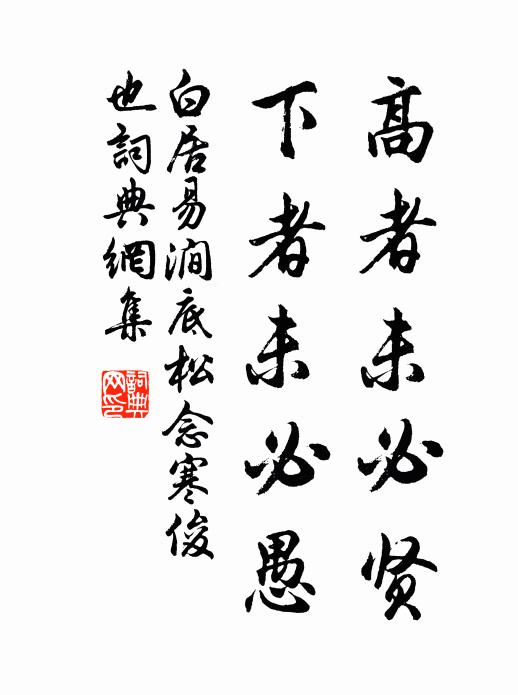 高者未必贤
下者未必愚
白居易涧底松念寒俊
也詞典網集
詞典
网印